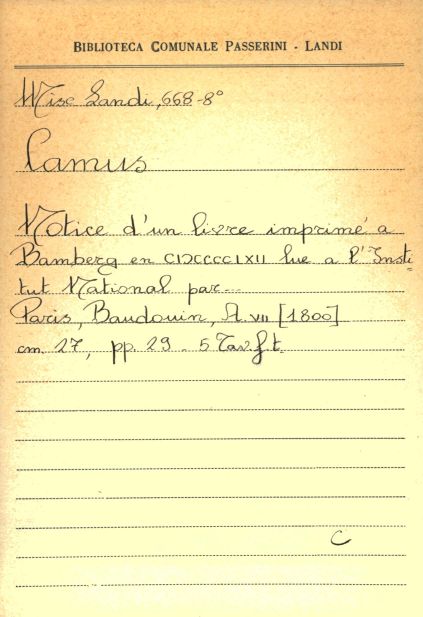 BIBLIOTECA COMUNALE PASSERINI - LANDI
Misc Landi, 668-8°
Camus
Notice d'un livre imprimé a
Bamberg en CIƆCCCCLXII lue a l'Insti=
tut National par...
Paris, Baudouin, A. VII [1800]
cm. 27, pp. 29 - 5 Tav. f. t.
C